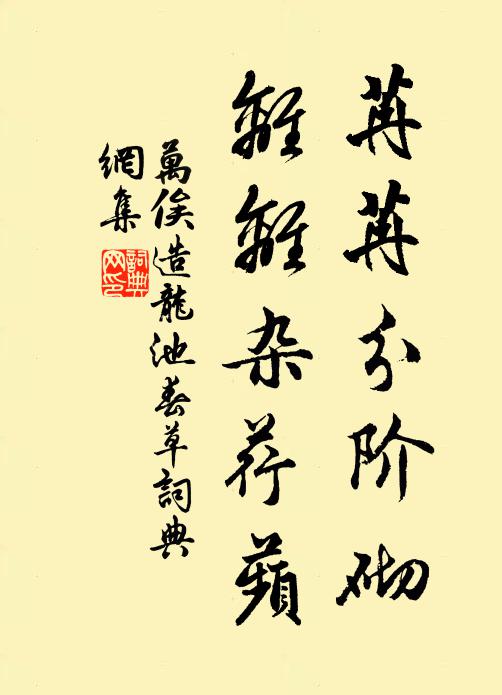 苒苒分阶砌
離離杂荇蘋
萬俟造龍池春草詞典
網集
詞典
网印